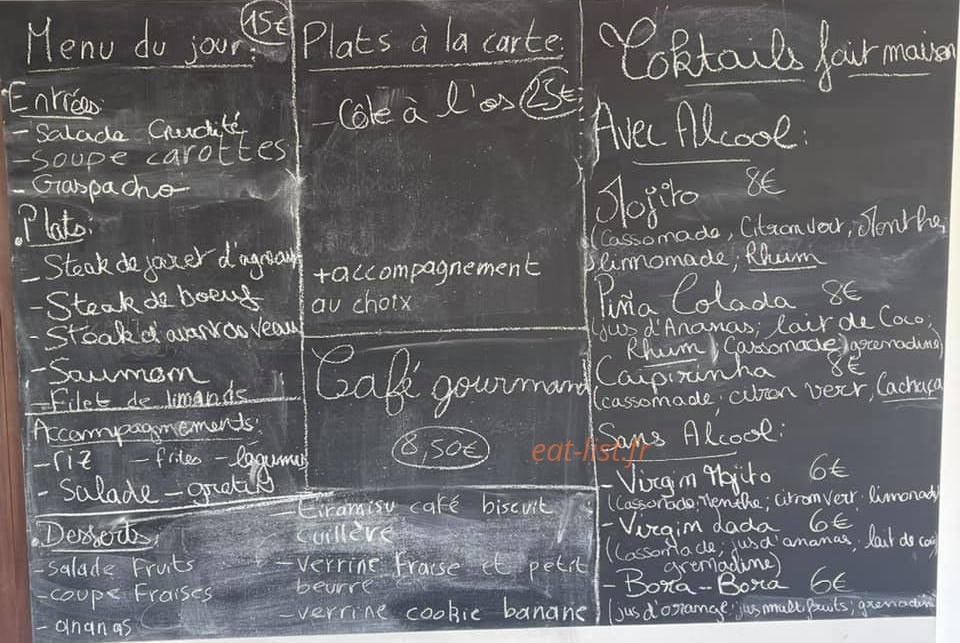 Menu du jour: 15€
Entrées:
- Salade Crudité
- Soupe carottes
- Gaspacho
Plats:
- Steak de jaret d'agneau
- Steak de boeuf
- Steak d'avant de veau
- Saumom
- Filet de limande
Accompagnements:
- riz - frites - legumes
- Salade - gratin
Desserts:
- Salade Fruits
- coupe Fraises
- ananas
- tiramisu café biscuit
cuillère
- verrine fraise et petit
beurre
- verrine cookie banane
Plats à la carte:
- Côte à l'os 25€
+ accompagnement
au choix
Café gourmand
8,50€
Coktails fait maison
Avec Alcool:
Mojito 8€
(Cassonade, Citron vert, Menthe,
limmomade, Rhum
Piña Colada 8€
(jus d'Ananas; lait de Coco;
Rhum, Cassomade, grenadine)
Caipirinha 8€
(cassomade, citron vert, Cachaça
Sans Alcool:
- Virgin Mojito 6€
(Cassonade, Menthe, citron vert, limonade
- Virgin Lada 6€
(Cassonade, jus d'ananas, lait de coco
grenadine)
- Bora-Bora 6€
(jus d'orange; jus multifruits; grenadine
eat-list.fr